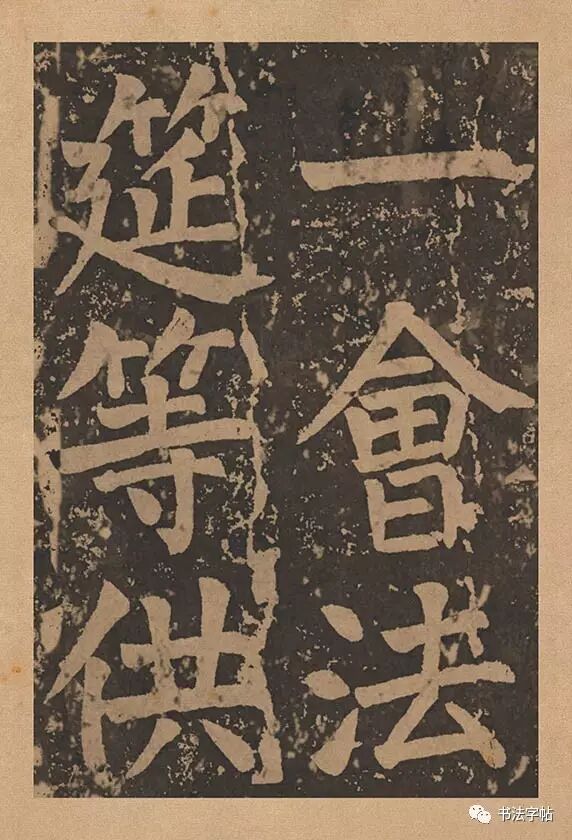 一會法
筵等供
书法字帖